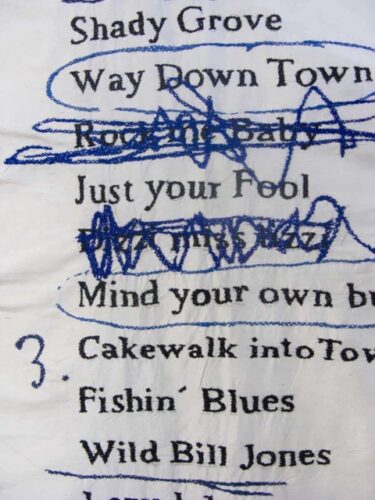 Shady Grove
Way Down Town
Rock me Baby
Just your Fool
Dizzi miss lizzi
Mind your own bu
3. Cakewalk into Tow
Fishin´ Blues
Wild Bill Jones